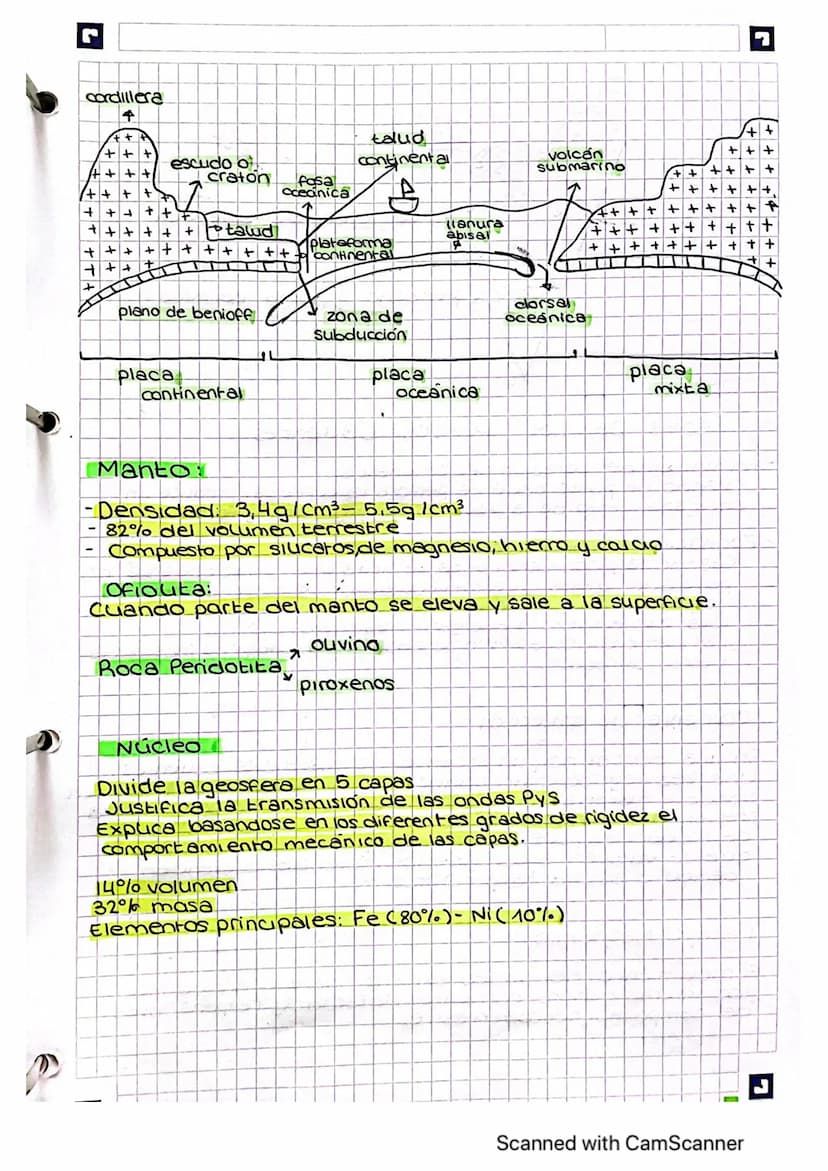 cordillera
escudo o
cratón
talud
continental
fosa
oceánica
volcán
submarino
talud
plataforma
continental
llanura
abisal
plano de benioff
zona de
subducción
dorsal
oceánica
placa
continental
placa
oceánica
placa
mixta
Manto:
- Densidad: 3,4g/cm³ - 5.5g/cm³
- 82% del volumen terrestre
- Compuesto por silicatos, de magnesio, hierro y calcio
Ofiolita:
Cuando parte del manto se eleva y sale a la superficie.
olivino
Roca Peridotita
piroxenos
Núcleo
Divide la geosfera en 5 capas
Justifica la transmisión de las ondas P y S
Explica basandose en los diferentes grados de rigidez el
comportamiento mecánico de las capas.
14% volumen
32% masa
Elementos principales: Fe (80%) - Ni (10%)
Scanned with CamScanner